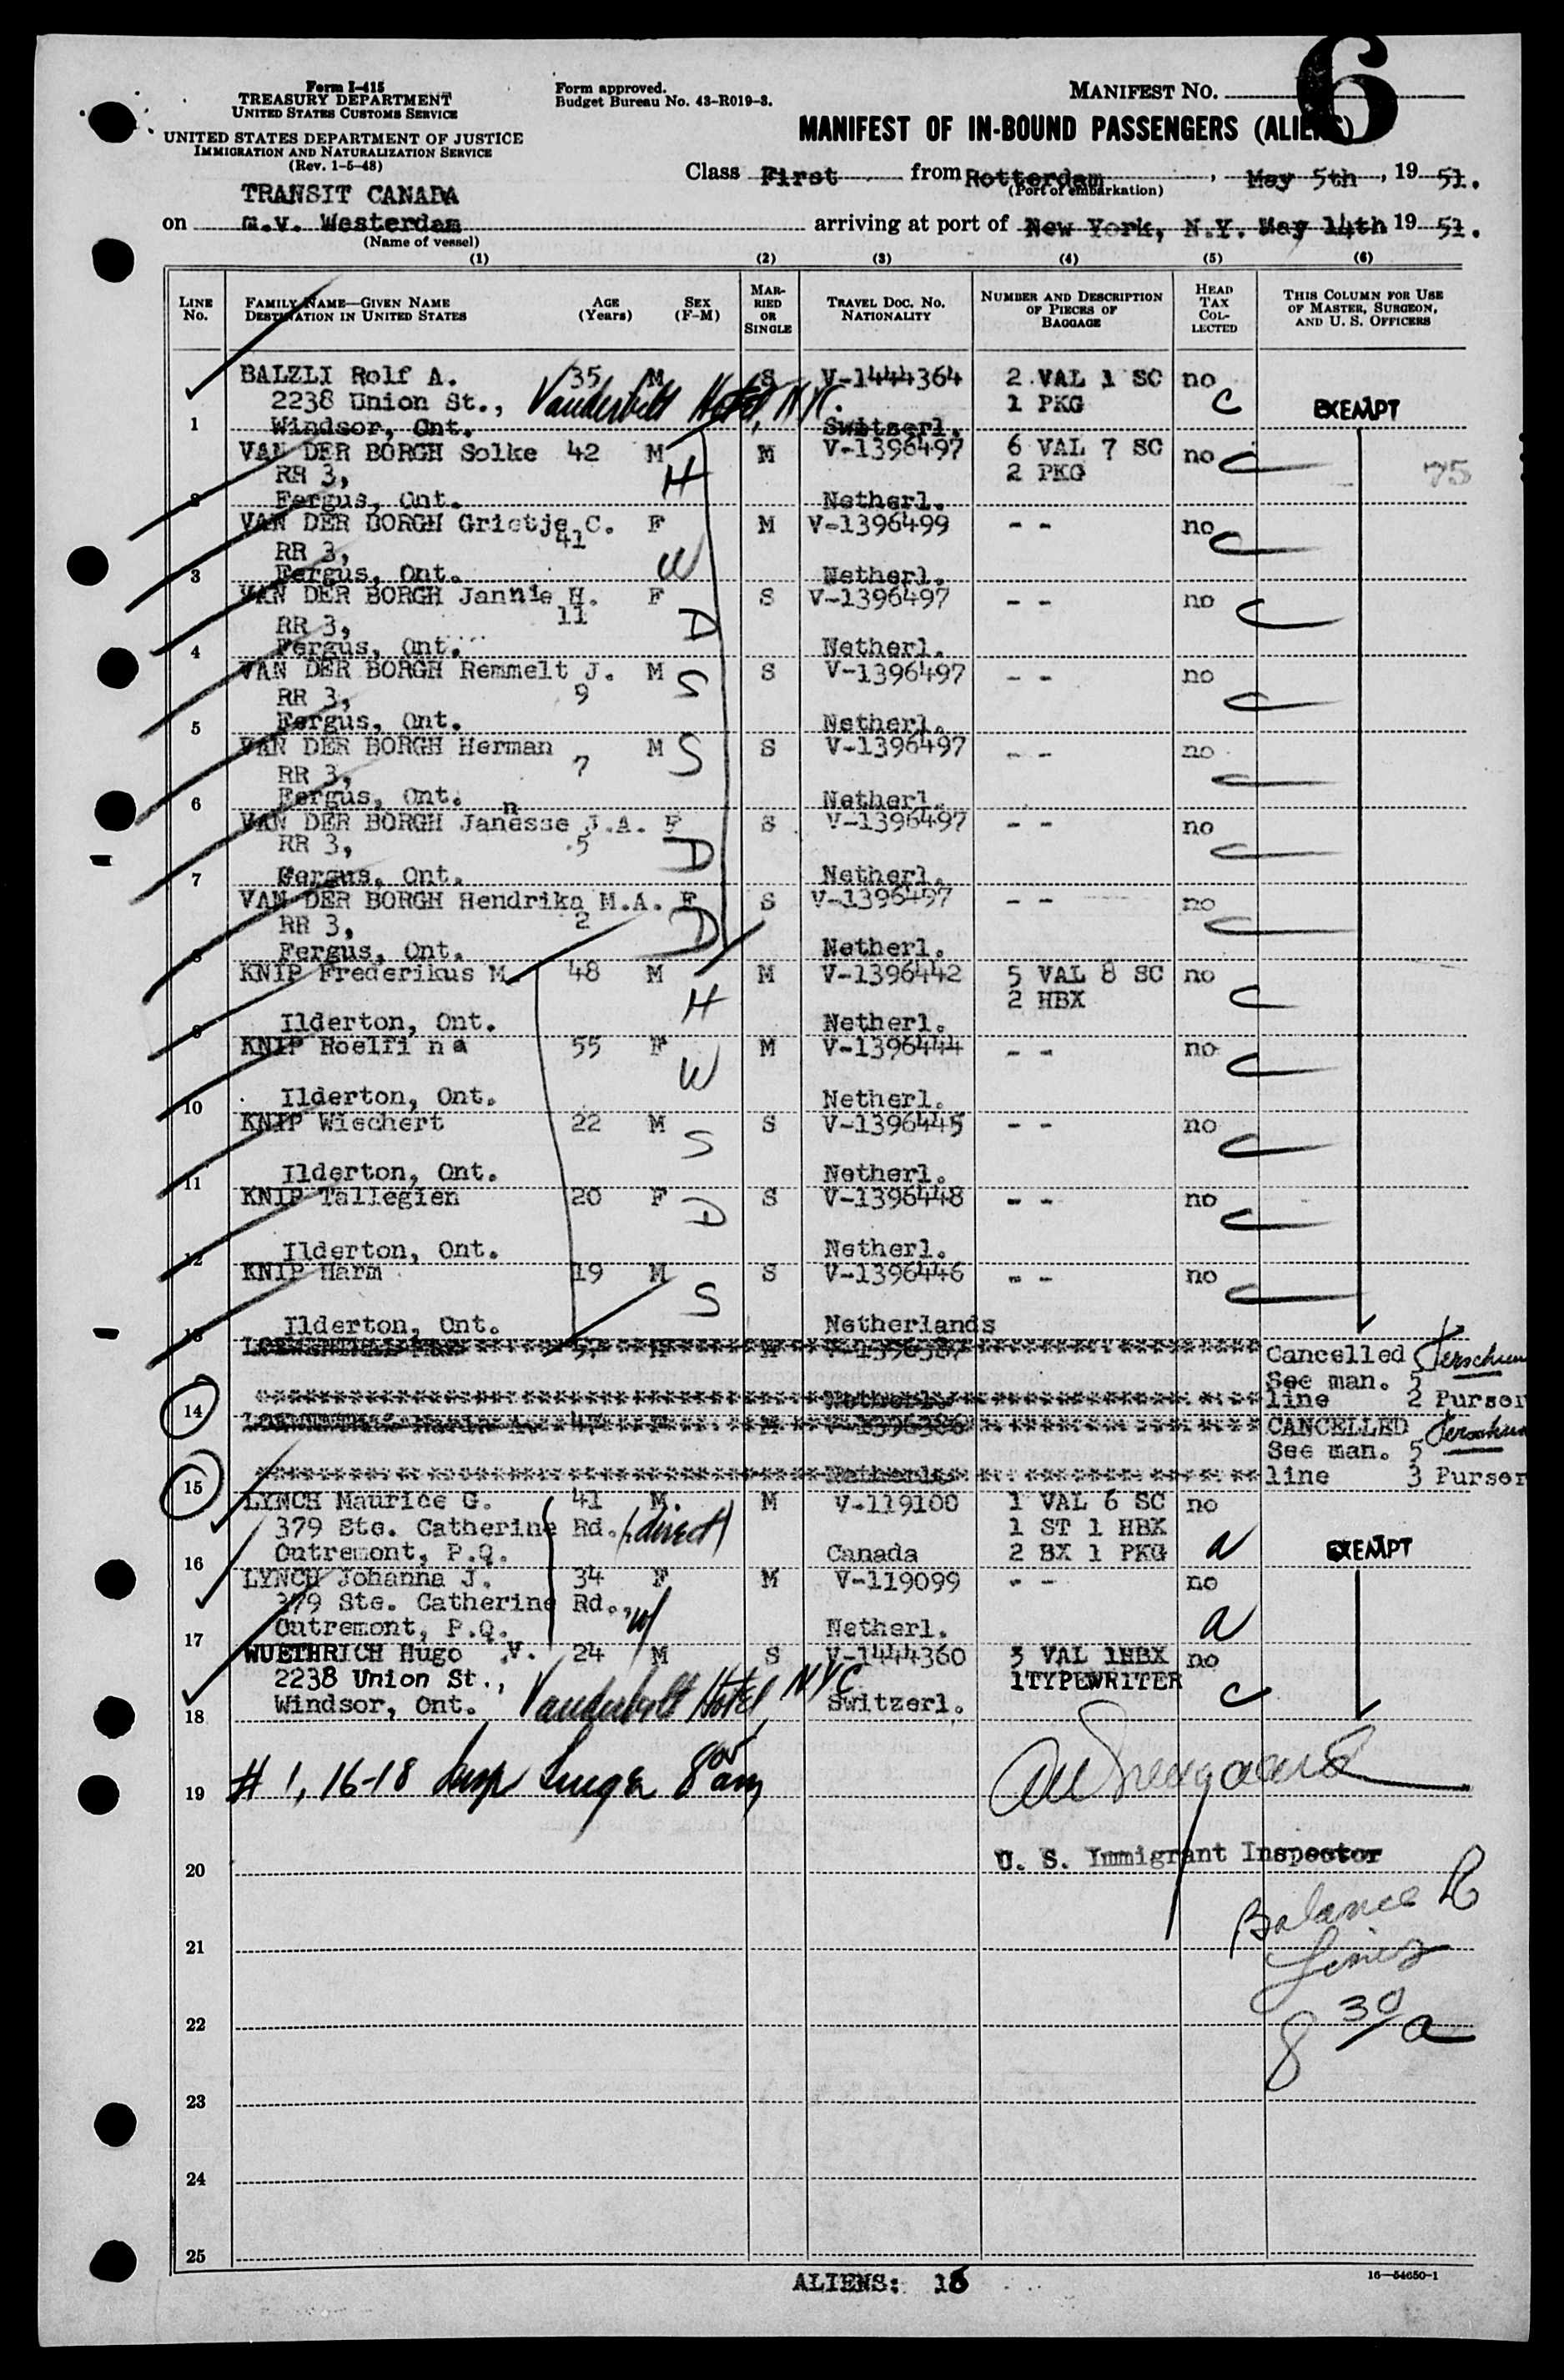 6
Form I-415
TREASURY DEPARTMENT
UNITED STATES CUSTOMS SERVICE
UNITED STATES DEPARTMENT OF JUSTICE
IMMIGRATION AND NATURALIZATION SERVICE
(Rev. 1-5-48)
Form approved.
Budget Bureau No. 43-R019-3.
MANIFEST NO.
MANIFEST OF IN-BOUND PASSENGERS (ALIENS)
Class First from Rotterdam, May 5th, 19 51.
(Port of embarkation)
TRANSIT CANADA
on m.v. Westerdam arriving at port of New York, N.Y. May 14th 19 51.
(Name of vessel)
(1) (2) (3) (4) (5) (6)
LINE No. FAMILY NAME—GIVEN NAME DESTINATION IN UNITED STATES AGE (Years) SEX (F-M) MARRIED OR SINGLE TRAVEL DOC. No. NATIONALITY NUMBER AND DESCRIPTION OF PIECES OF BAGGAGE HEAD TAX COLLECTED THIS COLUMN FOR USE OF MASTER, SURGEON, AND U. S. OFFICERS
BALZLI Rolf A. 35 M S V-1444364 2 VAL 1 SC no
2238 Union St., Vanderbilt Hotel, NYC. 1 PKG C EXEMPT
1 Windsor, Ont. Switzerl.
VAN DER BORGH Solke 42 M M V-1396497 6 VAL 7 SC no C
RR 3, H 2 PKG 75
Fergus, Ont. Netherl.
VAN DER BORGH Grietje C. F M V-1396499 - - no C
41
RR 3, W
3 Fergus, Ont. Netherl.
VAN DER BORGH Jannie H. F S V-1396497 - - no C
11
RR 3, D
4 Fergus, Ont. Netherl.
VAN DER BORGH Remmelt J. M S S V-1396497 - - no C
RR 3, 9
5 Fergus, Ont. Netherl.
VAN DER BORGH Herman M S S V-1396497 - - no C
RR 3, 7
6 Fergus, Ont. Netherl.
n
VAN DER BORGH Janesse J.A. F S V-1396497 - - no C
RR 3, 5 D
7 Fergus, Ont. Netherl.
VAN DER BORGH Hendrika M.A. F S V-1396497 - - no C
RR 3, 2 D
8 Fergus, Ont. Netherl.
KNIP Frederikus M. 48 M M V-1396442 5 VAL 8 SC no C
H 2 HBX
9 Ilderton, Ont. Netherl.
KNIP Roelfina 55 F M V-1396444 - - no C
W
10 Ilderton, Ont. Netherl.
KNIP Wiechert 22 M S V-1396445 - - no C
S
11 Ilderton, Ont. Netherl.
KNIP Tallegien 20 F S V-1396448 - - no C
D
12 Ilderton, Ont. Netherl.
KNIP Harm 19 M S V-1396446 - - no C
S
13 Ilderton, Ont. Netherlands
Cancelled
See man. 5
14 Netherl. line 2 Purser
V-1396386 CANCELLED
See man. 5
15 Netherl. line 3 Purser
LYNCH Maurice G. 41 M. M V-119100 1 VAL 6 SC no
379 Ste. Catherine Rd., (direct) 1 ST 1 HBX
16 Outremont, P.Q. Canada 2 BX 1 PKG a EXEMPT
LYNCH Johanna J. 34 F M V-119099 - - no
379 Ste. Catherine Rd., w/
17 Outremont, P.Q. Netherl. a
WUETHRICH Hugo V. 24 M S V-1444360 3 VAL 1HBX no
2238 Union St., 1TYPEWRITER
18 Windsor, Ont. Vanderbilt Hotel, NYC Switzerl. C
19 # 1, 16-18 Insp 8 00 am
20 U. S. Immigrant Inspector
Balance
21 Lines
22 8 30/a
23
24
25
ALIENS: 16
16—54650-1